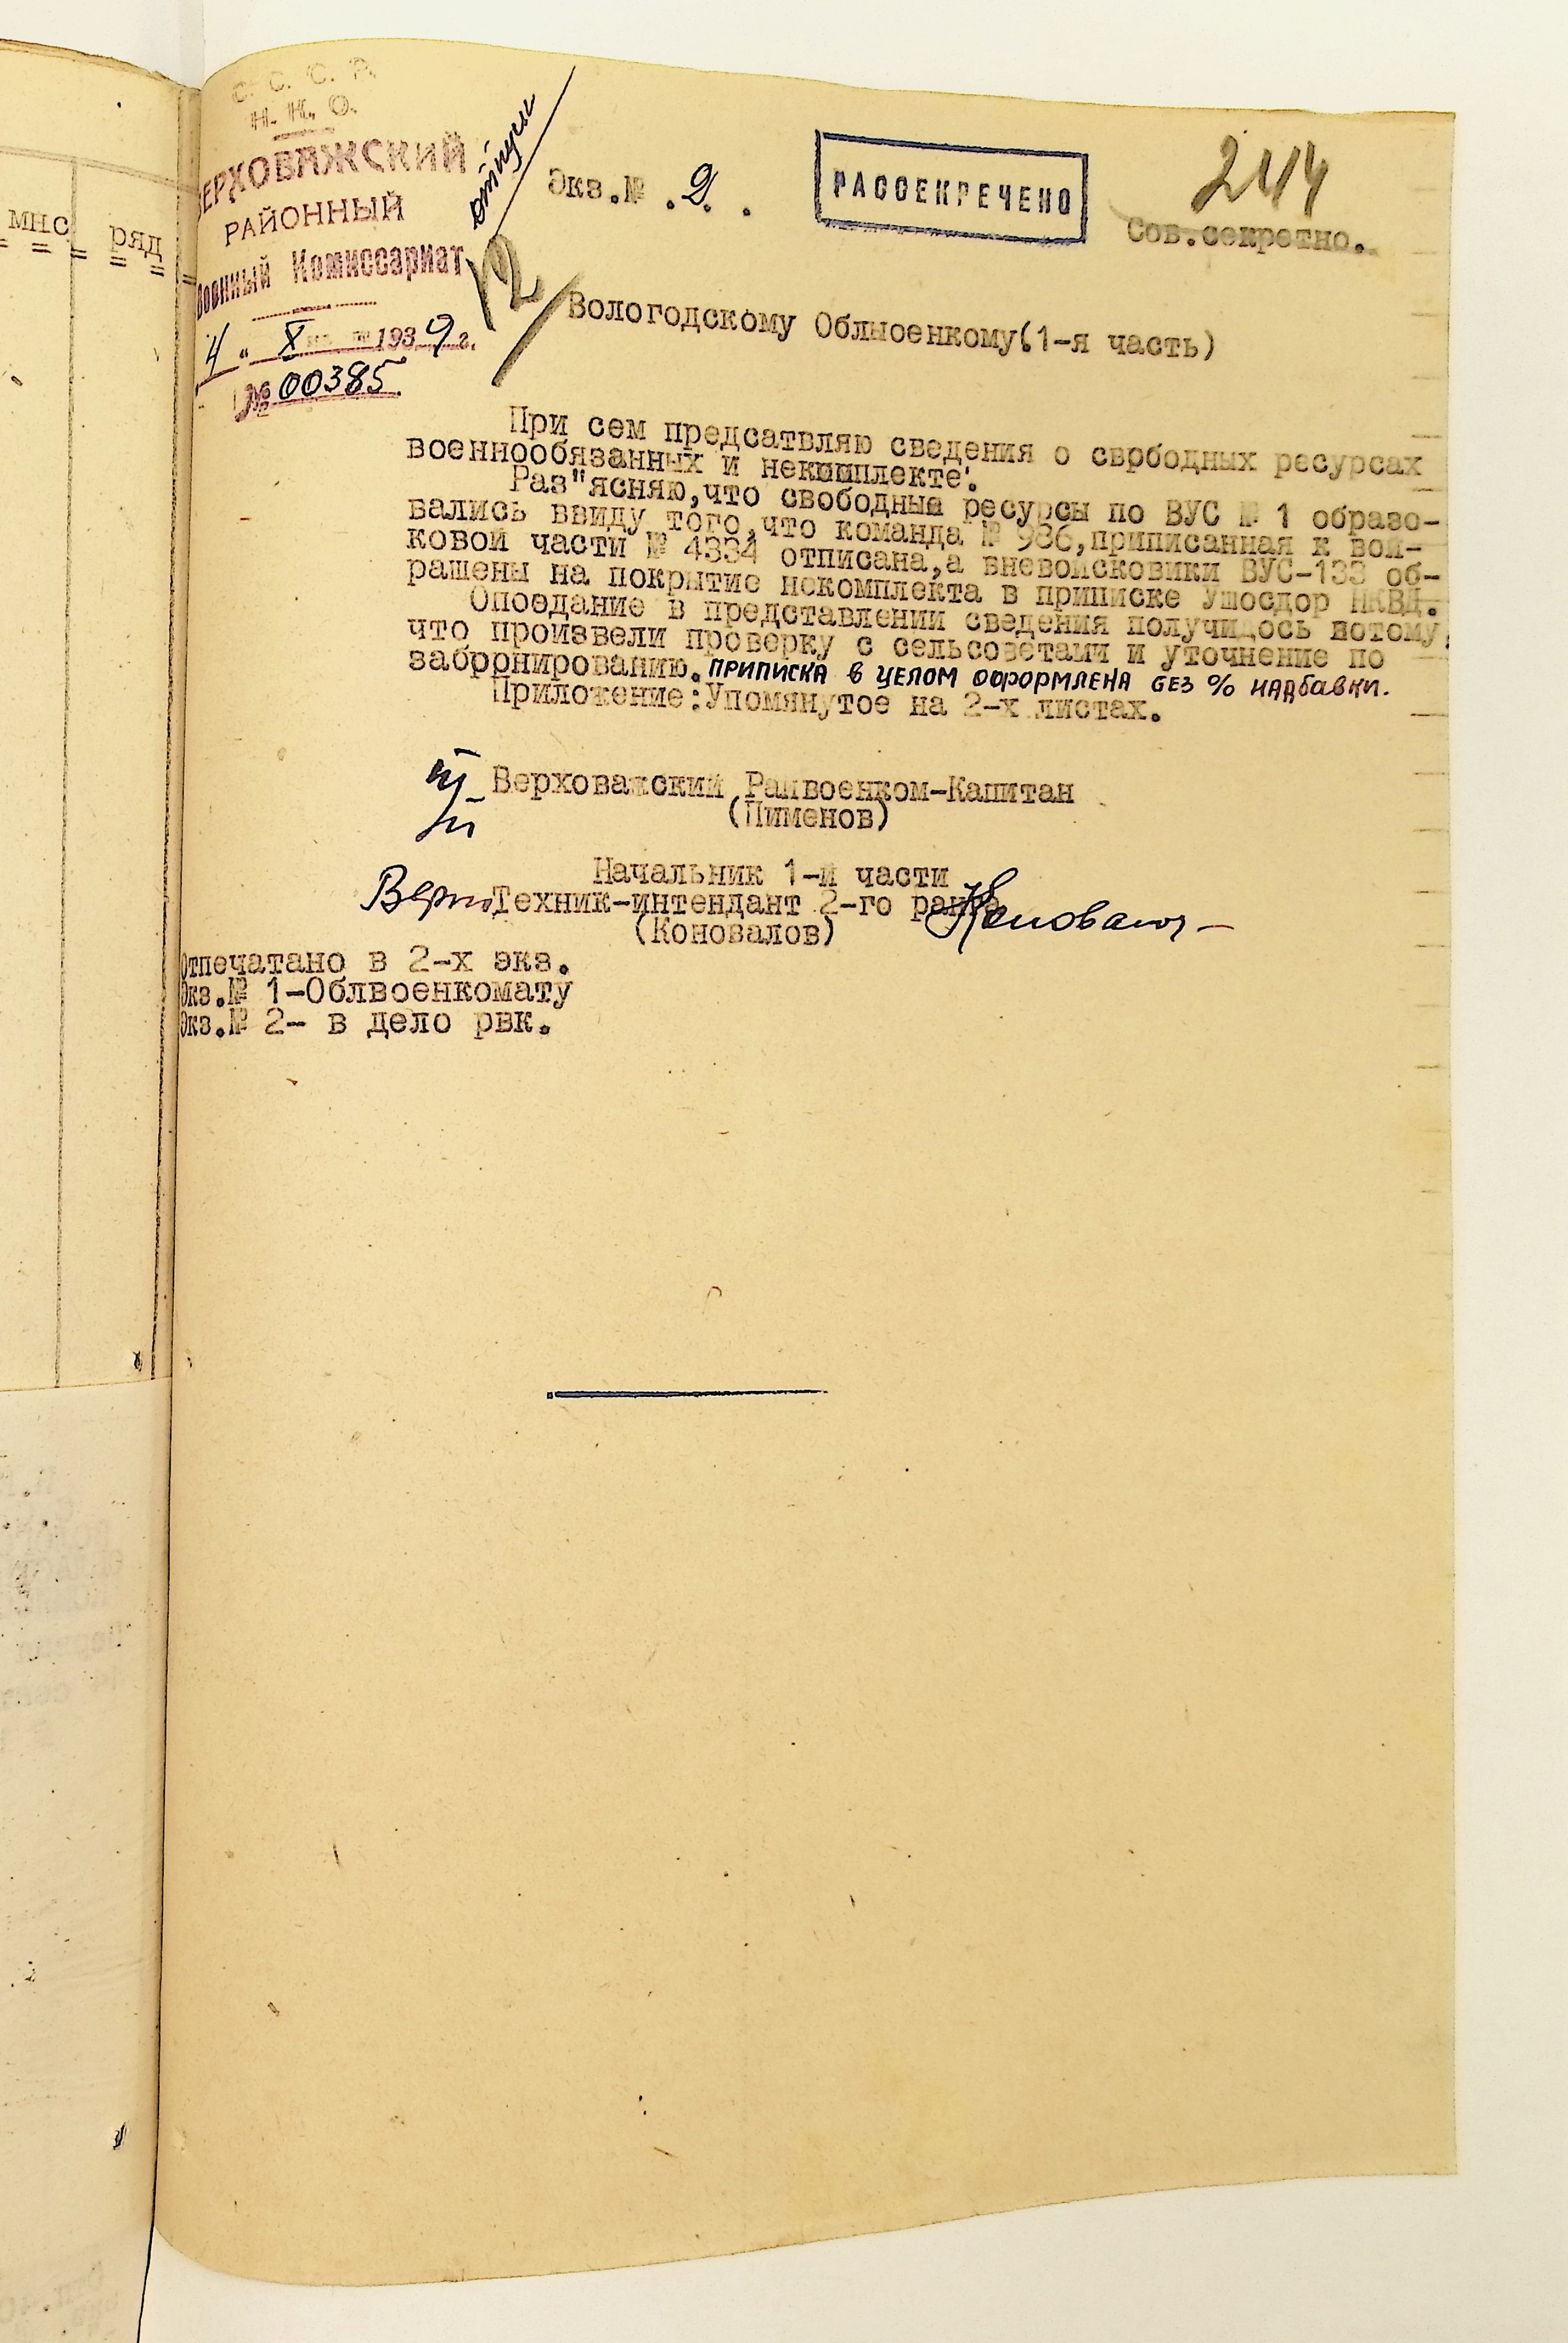 мнс ряд
С. С. С. Р.
Н. К. О.
ВЕРХОВАЖСКИЙ
РАЙОННЫЙ
Военный Комиссариат
4 " X 1939 г.
№ 00385.
отпуск
Экз.№ .2. .
РАССЕКРЕЧЕНО
244
Сов.секретно.
12
Вологодскому Облвоенкому(1-я часть)
При сем предсатвляю сведения о сврбодных ресурсах
военнообязанных и некомплекте.
Раз"ясняю,что свободные ресурсы по ВУС № 1 образо-
вались ввиду того,что команда № 986,приписанная к вой-
ковой части № 4334 отписана,а вневойсковики ВУС-133 об-
ращены на покрытие некомплекта в приписке Ушосдор НКВД.
Опоздание в представлении сведения получилось потому,
что произвели проверку с сельсоветами и уточнение по
забррнированию. ПРИПИСКА В ЦЕЛОМ ОФОРМЛЕНА БЕЗ % НАДБАВКИ.
Приложение:Упомянутое на 2-х листах.
Верховажский Райвоенком-Капитан
(Пименов)
Начальник 1-й части
Верно Техник-интендант 2-го ранга Коновалов
(Коновалов)
Отпечатано в 2-х экз.
Экз.№ 1-Облвоенкомату
Экз.№ 2- в дело рвк.